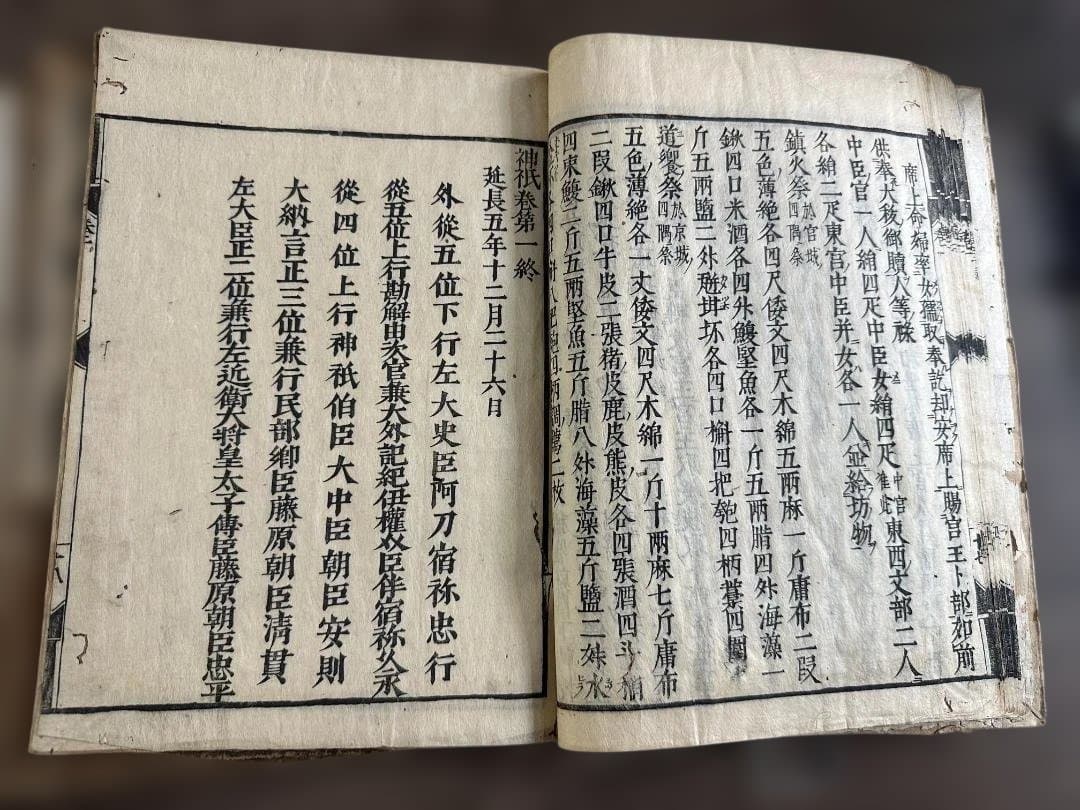 席上命婦率女孺取奉訖却安席上賜宮主卜部於前
供奉大秡御贖人等祿
中臣官一人絹四疋中臣女絹四疋中宮准此東西文部二人
各絹二疋東宮中臣并女各一人並給坊物
鎮火祭於宮城四隅祭
五色薄絁各四尺倭文四尺木綿五兩麻一斤庸布二段
鍬四口米酒各四升鰒堅魚各一斤五兩腊四升海藻一
斤五兩鹽二升瓼坩坏各四口槲四把匏四柄薦四圍
道饗祭於京城四隅祭
五色薄絁各一丈倭文四尺木綿一斤十兩麻七斤庸布
二段鍬四口牛皮二張猪皮鹿皮熊皮各四張酒四斗稻
四束鰒二斤五兩堅魚五斤腊八升海藻五斤鹽二升水
神祇卷第一終
延長五年十二月二十六日
外從五位下行左大史臣阿刀宿祢忠行
從五位上行勘解由次官兼大外記紀伊權介臣伴宿祢久永
從四位上行神祇伯臣大中臣朝臣安則
大納言正三位兼行民部卿臣藤原朝臣清貫
左大臣正二位兼行左近衛大將皇太子傅臣藤原朝臣忠平